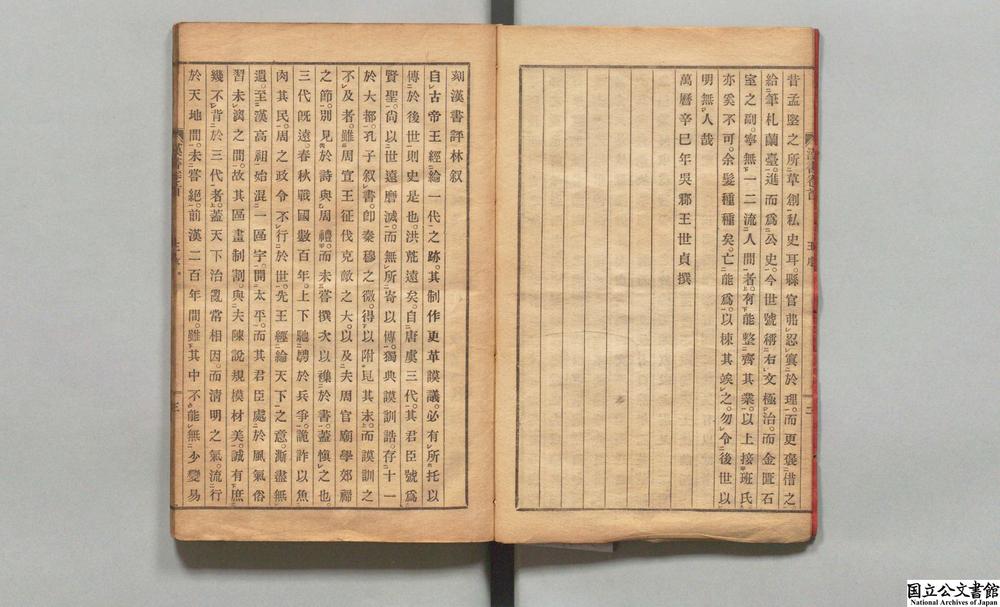 昔孟堅之所草創私史耳。縣官弗忍寘於理。而更褒借之
給筆札蘭臺。進而爲公史。今世號稱右文極治。而金匱石
室之副。寧無一二流人間者。有能整齊其業。以上接班氏
亦奚不可。余髮種種矣。亡能爲。以竢其竢之。勿令後世以
明無人哉
萬曆辛巳年吳郡王世貞撰
刻漢書評林叙
自古帝王經綸一代之跡。其制作更革謨議。必有所托以
傳於後世。則史是也。洪荒遠矣。自唐虞三代。其君臣號爲
賢聖。尙以世遠磨滅。而無所寄以傳。獨典謨訓誥。存十一
於大都。孔子叙書。卽秦穆之微。得以附見其末。而謨訓之
不及者。雖周宣王征伐克敵之大。以及夫周官廟學郊禘
之節。別見於詩與周禮。而未嘗撰次以襍於書。蓋愼之也。
三代旣遠。春秋戰國數百年。上下馳騁於兵爭。詭詐以魚
肉其民。周之政令不行於世。先王經綸天下之意。漸盡無
遺。至漢高祖。始混一區宇。開太平。而其君臣處於風氣俗
習未漓之間。故其區畫制割。與夫陳說規模材美。誠有庶
幾不背於三代者。蓋天下治亂常相因。而清明之氣。流行
於天地間。未嘗絕。前漢二百年間。雖其中不能無少變易
漢書卷首
国立公文書館
National Archives of Japan